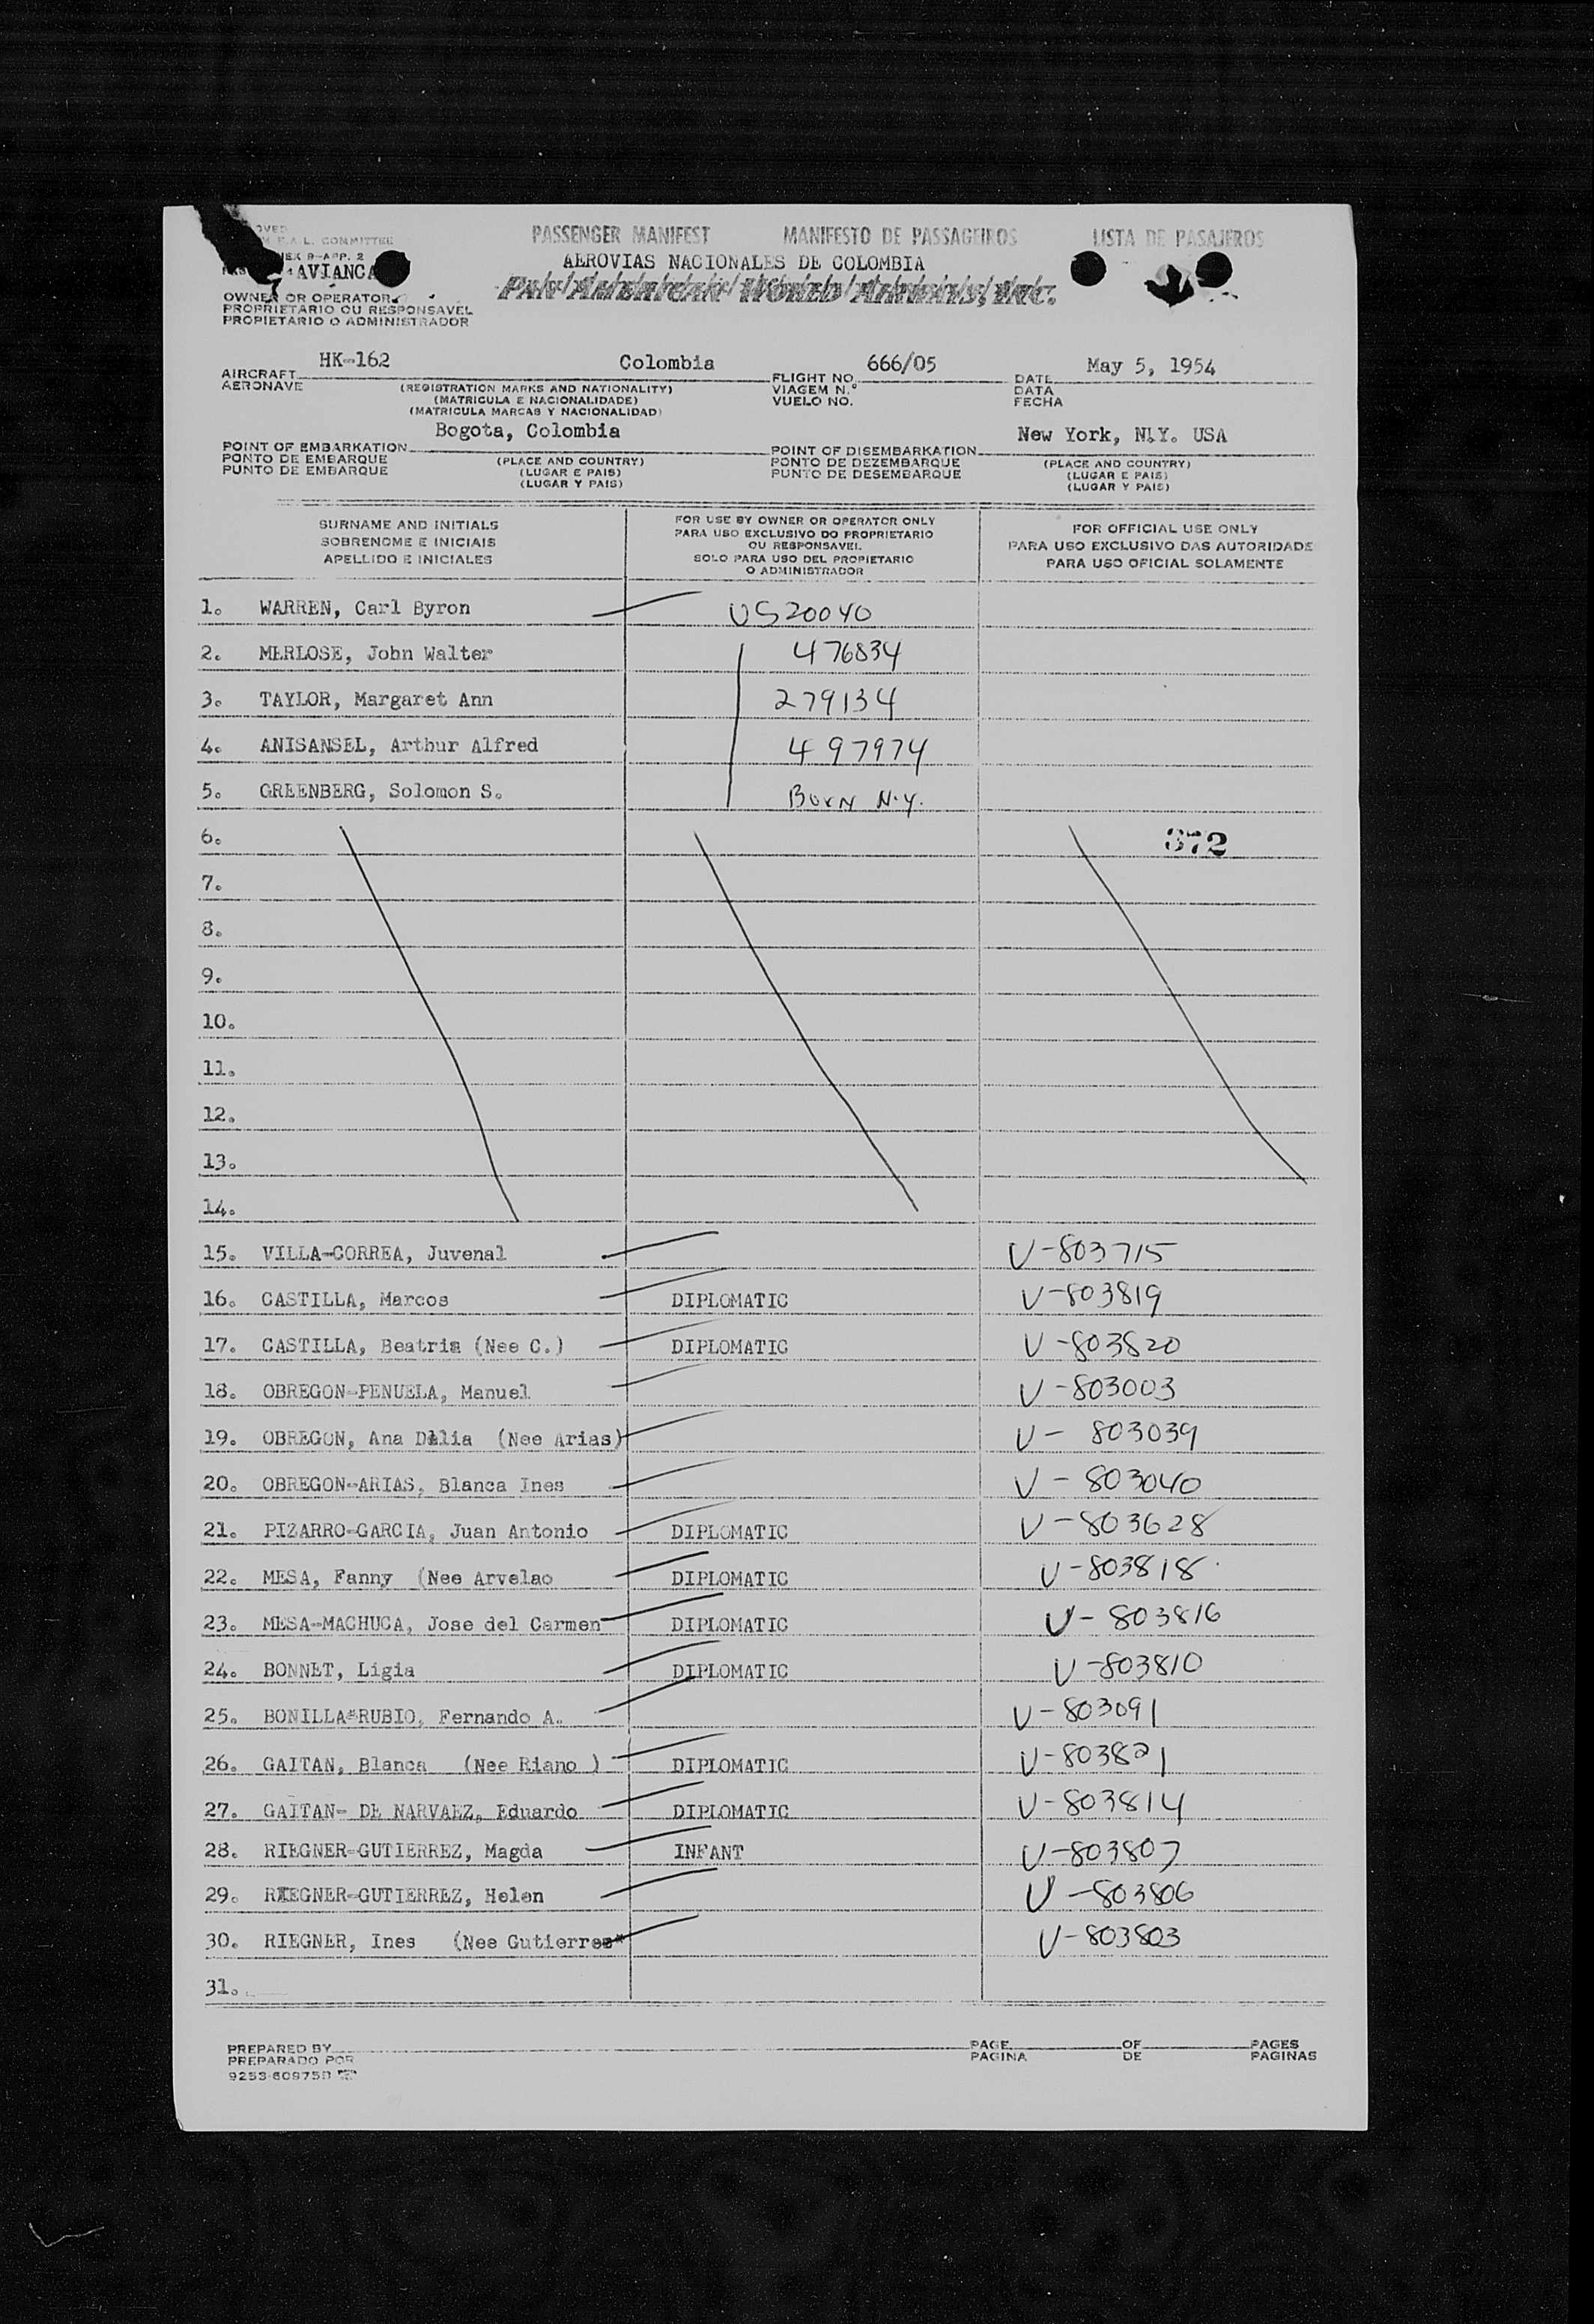 PASSENGER MANIFEST MANIFESTO DE PASSAGEIROS LISTA DE PASAJEROS
A.L. COMMITTEE
9-APP. 2
AVIANCA
AEROVIAS NACIONALES DE COLOMBIA
PAN AMERICAN WORLD AIRWAYS, INC.
OWNER OR OPERATOR
PROPRIETARIO OU RESPONSAVEL
PROPIETARIO O ADMINISTRADOR
AIRCRAFT HK-162 Colombia FLIGHT NO. 666/05 DATE May 5, 1954
AERONAVE (REGISTRATION MARKS AND NATIONALITY) VIAGEM N.° DATA
(MATRICULA E NACIONALIDADE) VUELO NO. FECHA
(MATRICULA MARCAS Y NACIONALIDAD)
POINT OF EMBARKATION Bogota, Colombia POINT OF DISEMBARKATION New York, N.Y. USA
PONTO DE EMBARQUE (PLACE AND COUNTRY) PONTO DE DEZEMBARQUE (PLACE AND COUNTRY)
PUNTO DE EMBARQUE (LUGAR E PAIS) PUNTO DE DESEMBARQUE (LUGAR E PAIS)
(LUGAR Y PAIS) (LUGAR Y PAIS)
SURNAME AND INITIALS
SOBRENOME E INICIAIS
APELLIDO E INICIALES
FOR USE BY OWNER OR OPERATOR ONLY
PARA USO EXCLUSIVO DO PROPRIETARIO
OU RESPONSAVEL
SOLO PARA USO DEL PROPIETARIO
O ADMINISTRADOR
FOR OFFICIAL USE ONLY
PARA USO EXCLUSIVO DAS AUTORIDADE
PARA USO OFICIAL SOLAMENTE
1. WARREN, Carl Byron US20040
2. MERLOSE, John Walter 476834
3. TAYLOR, Margaret Ann 279134
4. ANISANSEL, Arthur Alfred 497974
5. GREENBERG, Solomon S. BORN N.Y.
6. 372
7.
8.
9.
10.
11.
12.
13.
14.
15. VILLA-CORREA, Juvenal V-803715
16. CASTILLA, Marcos DIPLOMATIC V-803819
17. CASTILLA, Beatriz (Nee C.) DIPLOMATIC V-803820
18. OBREGON-PENUELA, Manuel V-803003
19. OBREGON, Ana Dilia (Nee Arias) V-803039
20. OBREGON-ARIAS, Blanca Ines V-803040
21. PIZARRO-GARCIA, Juan Antonio DIPLOMATIC V-803628
22. MESA, Fanny (Nee Arvelao DIPLOMATIC V-803818
23. MESA-MACHUCA, Jose del Carmen DIPLOMATIC V-803816
24. BONNET, Ligia DIPLOMATIC V-803810
25. BONILLA*RUBIO, Fernando A. V-803091
26. GAITAN, Blanca (Nee Riano ) DIPLOMATIC V-803821
27. GAITAN- DE NARVAEZ, Eduardo DIPLOMATIC V-803814
28. RIEGNER-GUTIERREZ, Magda INFANT V-803807
29. RIEGNER-GUTIERREZ, Helen V-803806
30. RIEGNER, Ines (Nee Gutierrez* V-803803
31.
PREPARED BY PAGE OF PAGES
PREPARADO POR PAGINA DE PAGINAS
9253-60975D